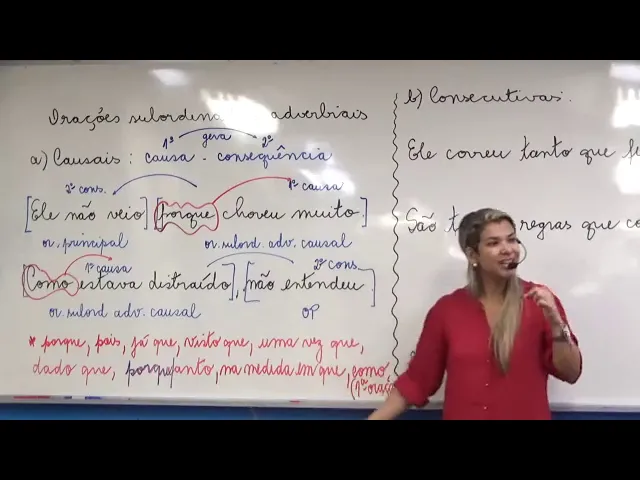 Orações subordina adverbiais
1º gera 2º
a) Causais: causa - consequência
2º cons. 1º causa
[Ele não veio] [porque choveu muito.]
or. principal or. subord. adv. causal
1º causa 2º cons.
[Como estava distraído], [não entendeu.]
or. subord adv. causal OP
* porque, pois, já que, visto que, uma vez que,
dado que, porquanto, na medida em que, como
(1ª oraçã
b) Consecutivas.
Ele correu tanto que
São regras que